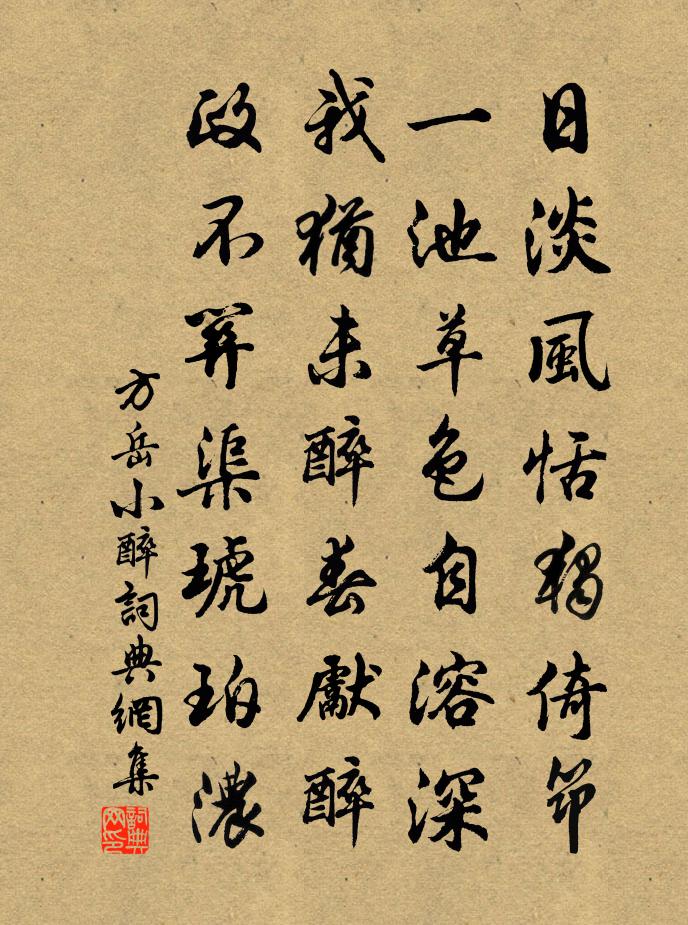 日淡風恬獨倚筇
一池草色自溶深
我猶未醉春獻醉
政不筭渠琥珀濃
方岳小醉詞典網集
詞典
网印